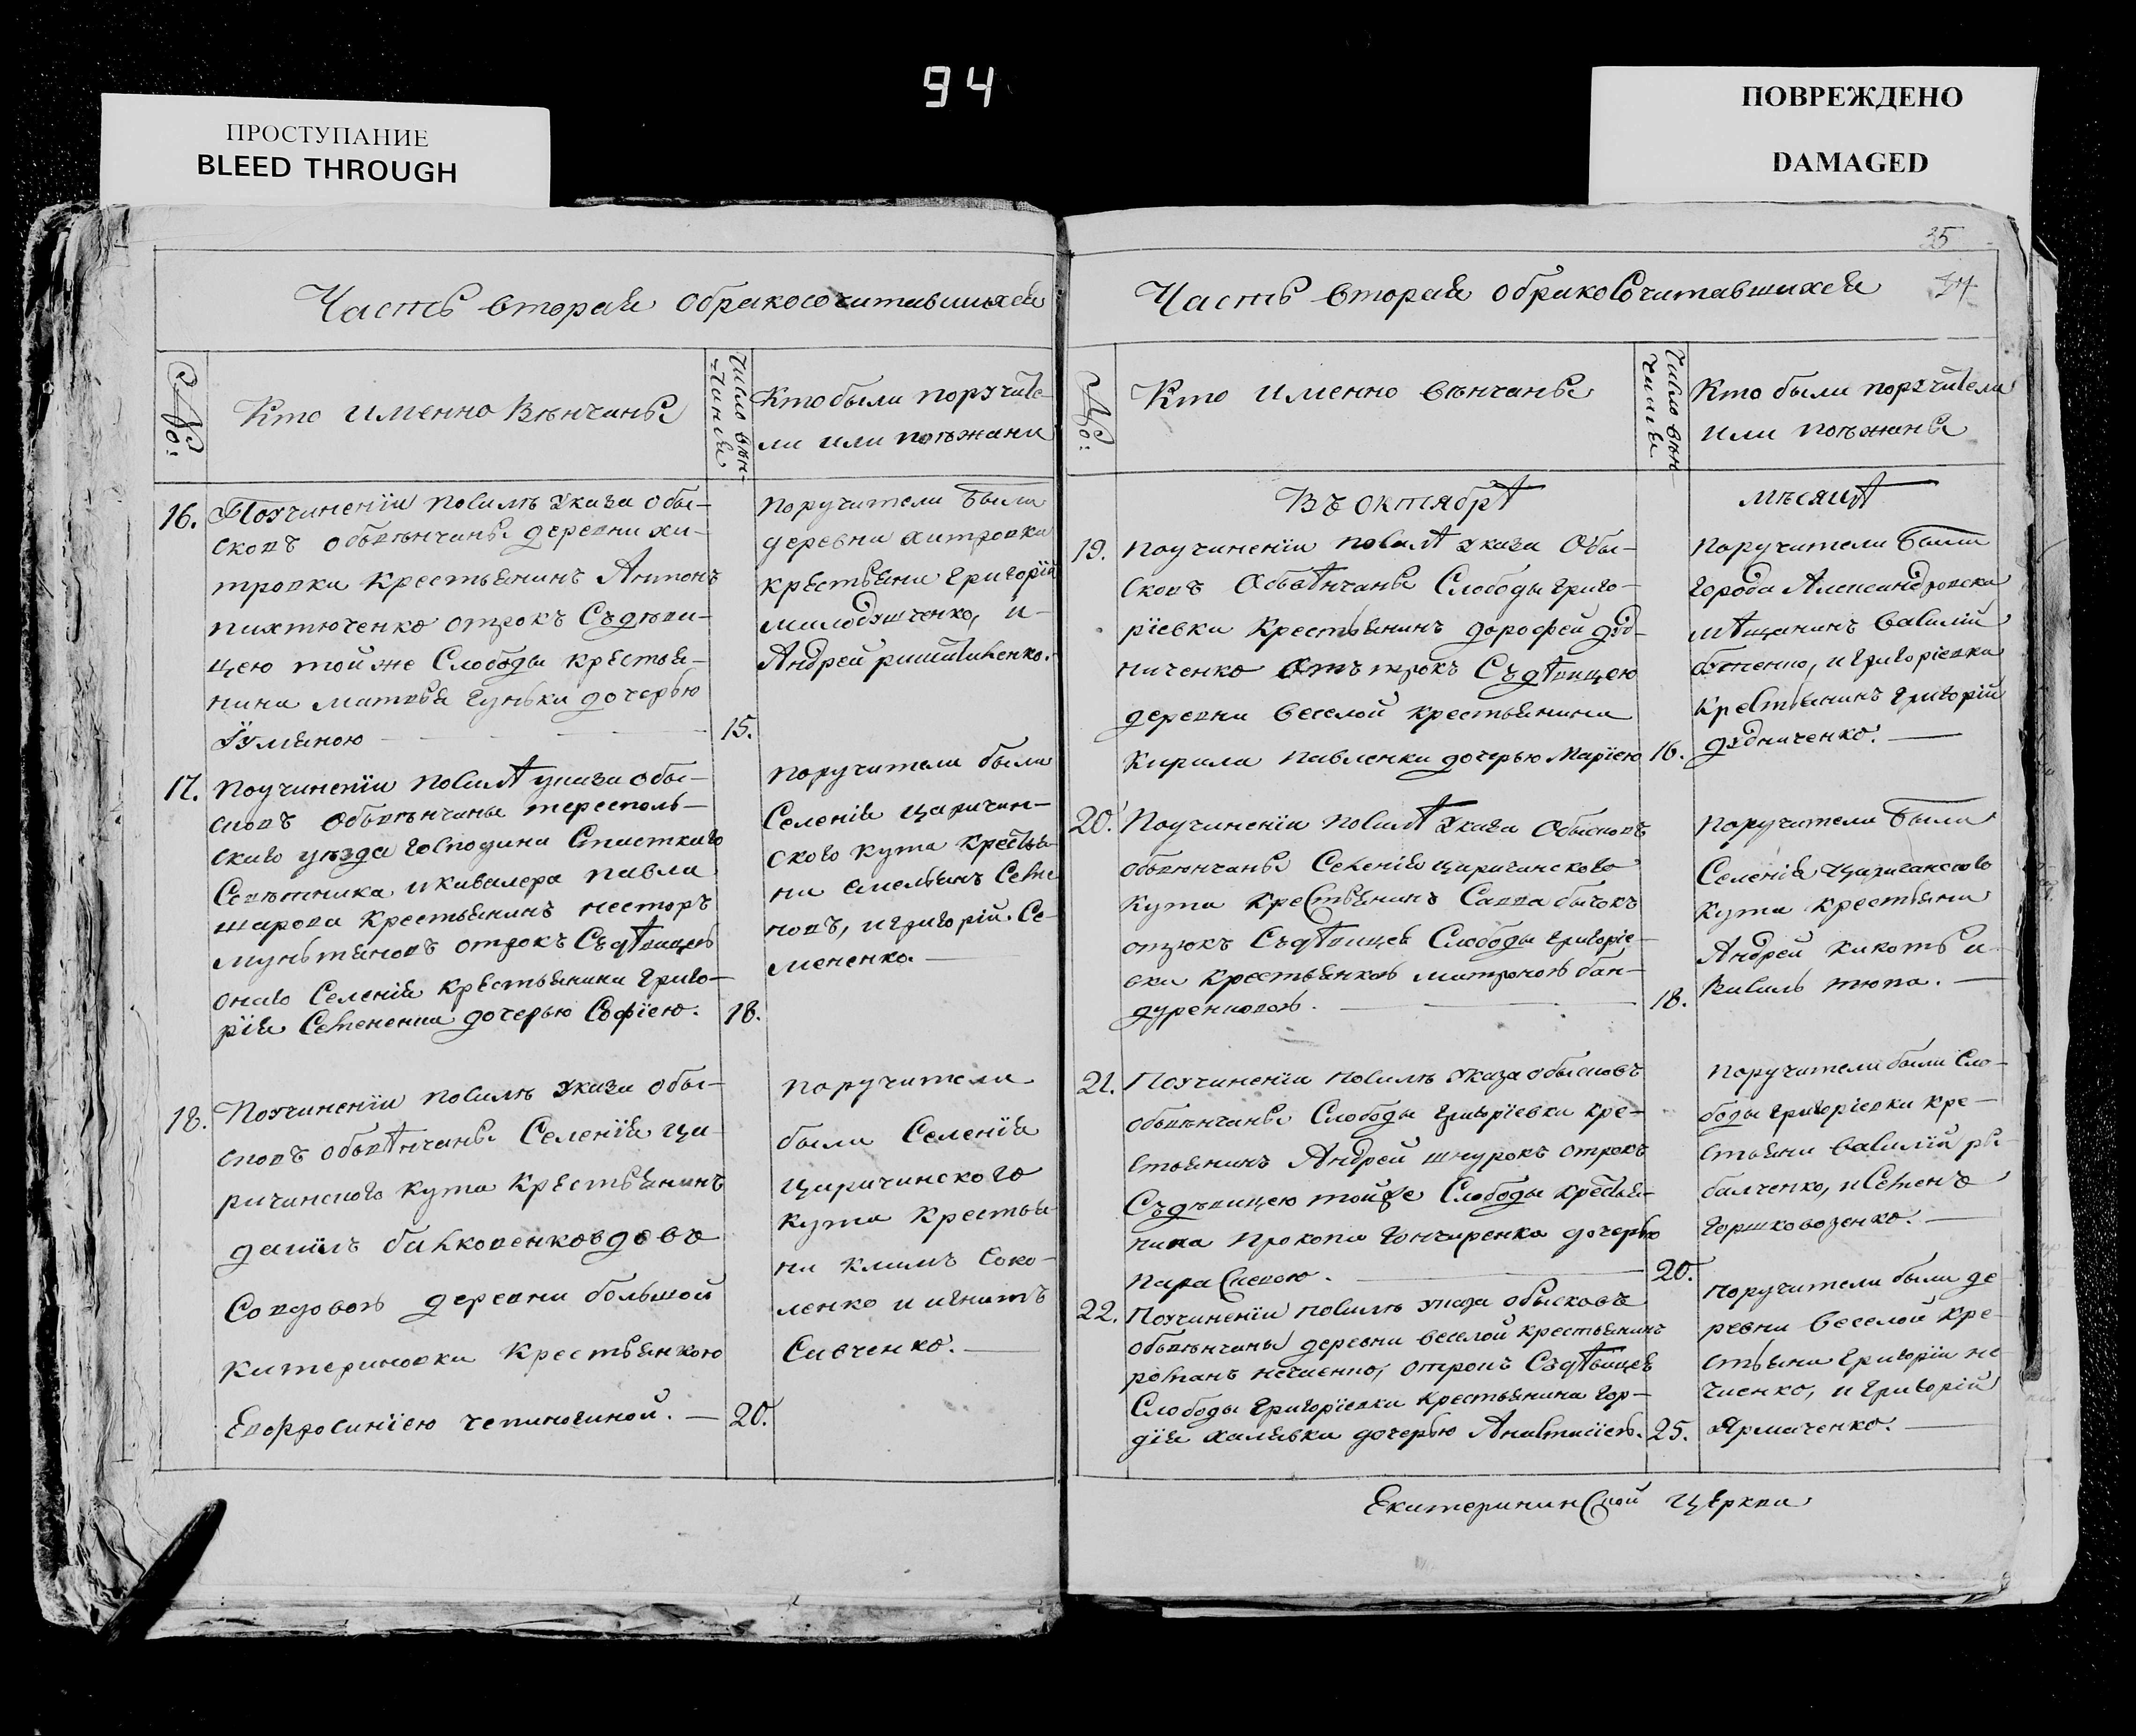 94
ПРОСТУПАНИЕ
BLEED THROUGH
ПОВРЕЖДЕНО
DAMAGED
Часть вторая обракосочитавшихся
№:
Кто именно вѣнчанъ
Число вѣн-
чания
Кто были поручите-
ли или поѣжани
16. Поучиненїи посилѣ указа обы-
сковъ обвѣнчанъ деревни хи-
тровки крестьянинъ Антонъ
пихтюченко отрокъ Съдѣви-
цею тойже Слободы крестья-
нина матвея гунька дочерью
Ѹлияною 15.
поручители были
деревни хитровки
крестьяни григорїй
милодѹшченко, и
Андрей
17. поучиненїи посилѣ указа обы-
сковъ обвѣнчаны тересполь-
скаго уѣзда господина Статскаго
Совѣтника икавалера павла
шарова крестьянинъ несторъ
мунтяновъ отрокъ Съдѣвицею
онаго Селенїя крестьянина григо-
рїя Семененка дочерью Софїею. 18.
поручители были
Селенїя царичин-
ского кута крестья-
ни емельянъ Семе
новъ, игригорїй Се-
мененко.
18. Поучиненїи посилѣ указа обы-
сковъ обвѣнчанъ Селенїя ца-
ричинского кута крестьянинъ
данїилъ вдовъ
Совдовою деревни большой
катериновки крестьянкою
Евфросинїею чепиногиной. 20.
поручители
были Селенїя
царичинского
кута крестья-
ни климъ Соко-
ленко и игнатъ
Савченко.
35
Часть вторая обракосочитавшихся
№:
Кто именно вѣнчанъ
Число вѣн-
чания
Кто были поручители
или поѣжаны
Въ октябрѣ мѣсяцѣ
19. поучиненїи посилѣ указа обы-
сковъ обвѣнчанъ Слободы григо-
рїевки крестьянинъ дорофей дѹд-
ниченко отътрокъ Съдѣвицею
деревни веселой крестьянина
Кирила павленка дочерью Марїею 16.
поручители были
города Александровска
мѣщанинъ василїй
игригорїевки
крестьянинъ григорїй
дѹдниченко.
20. Поучиненїи посилѣ указа обысковъ
обвѣнчанъ Селенїя царичинского
кута крестьянинъ Савва бычокъ
отрокъ Съдѣвицею Слободы григорїе-
вки крестьянкою матроною бан-
дуренковою. 18.
поручители были
Селенїя царичанского
кута крестьяни
Андрей кикоть и
василь тюпа.
21. Поучиненїи посилѣ указа обысковъ
обвѣнчанъ Слободы григорїевки кре-
стьянинъ Андрей шнурокъ отрокъ
Съдѣвицею тойже Слободы крестья-
нина прокопа гончаренка дочерью
параскевою. 20.
поручители были Сло-
боды григорїевки кре-
стьяни василїй ры-
балченко, иСеменъ
горшковозенко.
22. Поучиненїи посилѣ указа обысковъ
обвѣнчаны деревни веселой крестьянинъ
романъ нечаенко, отрокъ Съдѣвицею
Слободы григорїевки крестьянина гор-
дїя халявки дочерью Анастасїею. 25.
поручители были де
ревни веселой кре-
стьяни григорїи не
чаенко, и григорїй
Ярмаченко.
Екатерининской церкви